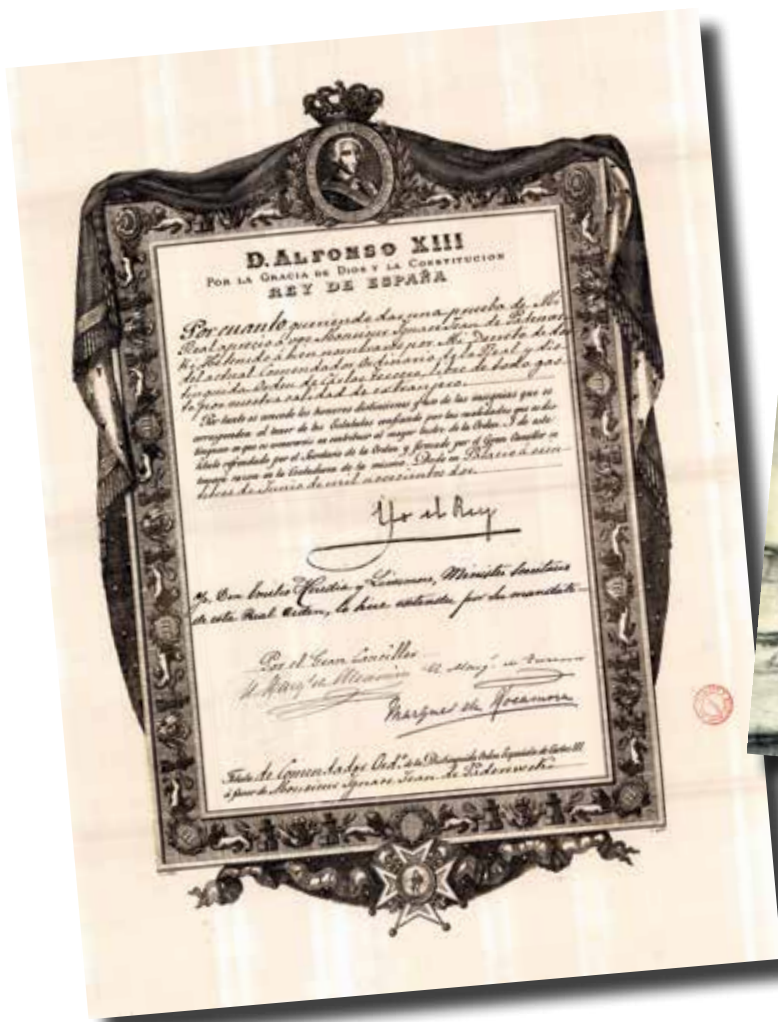 D. ALFONSO XIII
POR LA GRACIA DE DIOS Y LA CONSTITUCION
REY DE ESPAÑA
Por cuanto queriendo dar una prueba de Mi
Real aprecio á vos Monsieur Ignace Jean de Paderews
ki He tenido á bien nombraros por Mi Decreto de doce
del actual Comendador Ordinario de la Real y dis-
tinguida Orden de Carlos Tercero, libre de todo gas-
to por vuestra calidad de extranjero.
Por tanto os concedo los honores distinciones y uso de las insignias que os
corresponden al tenor de los Estatutos confiando por las cualidades que os dis
tinguen en que os esmerareis en contribuir al mayor lustre de la Orden. Y de este
título refrendado por el Secretario de la Orden y firmado por el Gran Canciller se
tomará razon en la Contaduría de la misma. Dado en Palacio á
de Junio de mil novecientos dos
Yo el Rey
Yo, Don Emilio Heredia y Ministro Secretario
de esta Real Orden, lo hice extender por su mandato
Por el Gran Canciller
El Marqs de El Marqs de
Marques de Rocamora
Título de Comendador Ordo de la Distinguida Orden Española de Carlos III
á favor de Monsieur Ignace Jean de Paderewski